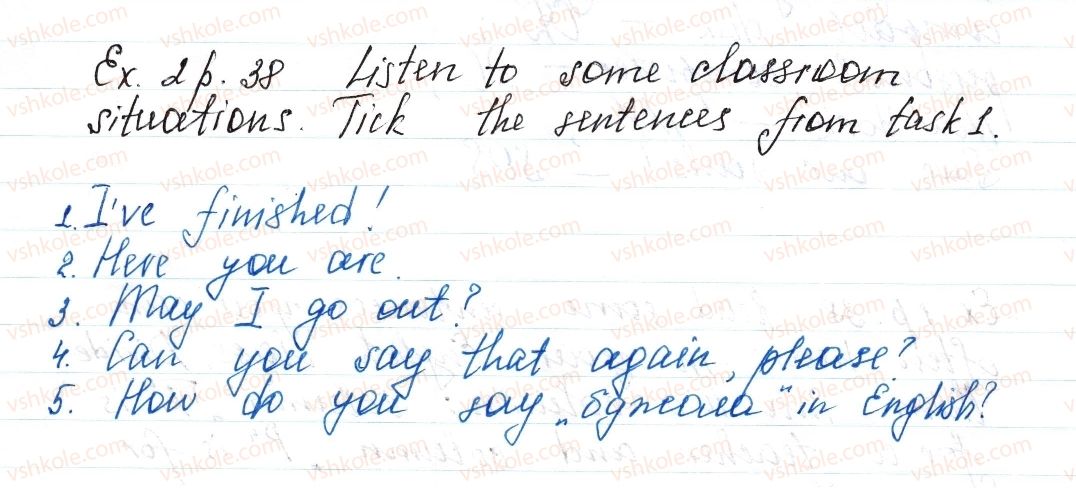 Ex. 2 p. 38 Listen to some classroom
situations. Tick the sentences from task 1.
1. I've finished!
2. Here you are.
3. May I go out?
4. Can you say that again, please?
5. How do you say „бджола" in English?